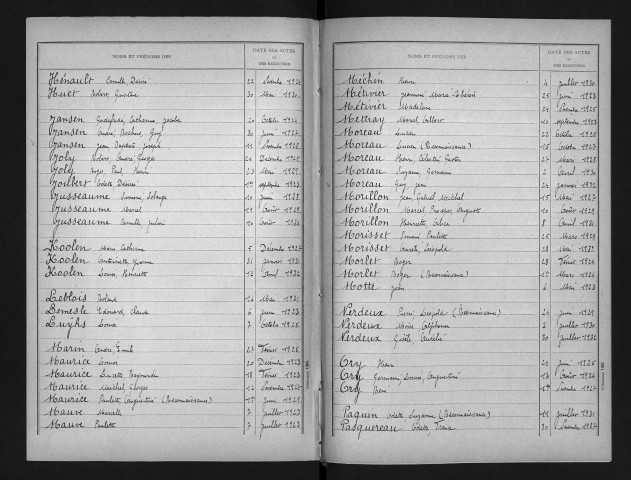 NOMS ET PRÉNOMS DES
DATE DES ACTES
OU
DES REGISTRES
Hénault Camille, Désiré 22 Novembre
Huet Robert, Gustave 30 Mai 1930
Jansen Catherina 20 Octobre 1924
Jansen André, Guy 30 Juin 1927
Jansen Jean Baptiste Joseph 11 Novembre
Joly Robert, André, Georges 24 Décembre
Joly Roger, Paul, Henri 23 Mai 1929
Joubert Odette, Désirée 1er septembre 1923
Jusseaume Simone, Solange 10 Juin 1928
Jusseaume Marcel 11 Août 1929
Jusseaume Camille 14 Août
Koolen Marie Catherine 5 Décembre 1927
Koolen Antoinette, Yvonne 31 Janvier
Koolen Louis, Henriette 12 Avril 1932
Leblois Roland 14 Mai 1931
Lemesle Edouard, Claude 6 Juin 1923
Luijks Louis 7 Octobre 1926
Marin André, Emile 27 Février 1926
Maurice Louis 20 Décembre 1923
Maurice Lucette, Raymonde 18 Février 1923
Maurice Michel, Georges 12 Novembre 1927
Maurice Paulette, Augustine (Reconnaissance) Juin 1929
Mauve Marcelle 7 Juillet 1923
Mauve Paulette 7 Juillet 1923
NOMS ET PRÉNOMS DES
DATE DES ACTES
OU
DES REGISTRES
Méchin Henri 4 Juillet 1930
Métivier Jeannine, Marie 25 Juin 1923
Métivier Madeleine 24 Novembre 1925
Mettray Marcel, Albert 10 septembre 1923
Moreau Lucien 22 Octobre 1926
Moreau Lucien (Reconnaissance) 15 Octobre 1927
Moreau Henri, Célestin, Gaston 27 Mars 1928
Moreau Suzanne, Germaine 2 Avril 1930
Moreau Guy, Jean 24 Janvier 1932
Morillon Jean Gabriel Michel 15 Mai 1927
Morillon Marcel, Prosper, Auguste 10 Août 1929
Morillon Henriette 8 Avril
Morisset Simone, Paulette 25 Mars 1929
Morisset Léopold 28 Mai 1932
Morlet Roger 28 Février 1924
Morlet Roger (Reconnaissance) Mars 1926
Motte Jean 6 Mai 1923
Nerdeux Pierre Léopold (Reconnaissance) 24 Juin
Nerdeux Alphonse 3 Juillet 1930
Nerdeux Gisèle, Aurélie 30 Juillet 1932
Ory Henri 24 Juin 1926
Ory Germaine, Louise, Augustine Août 1924
Ory René Novembre 1927
Paquin Odette Suzanne (Reconnaissance) 11 Juillet 1931
Pasquereau Odette 30 Novembre 1927